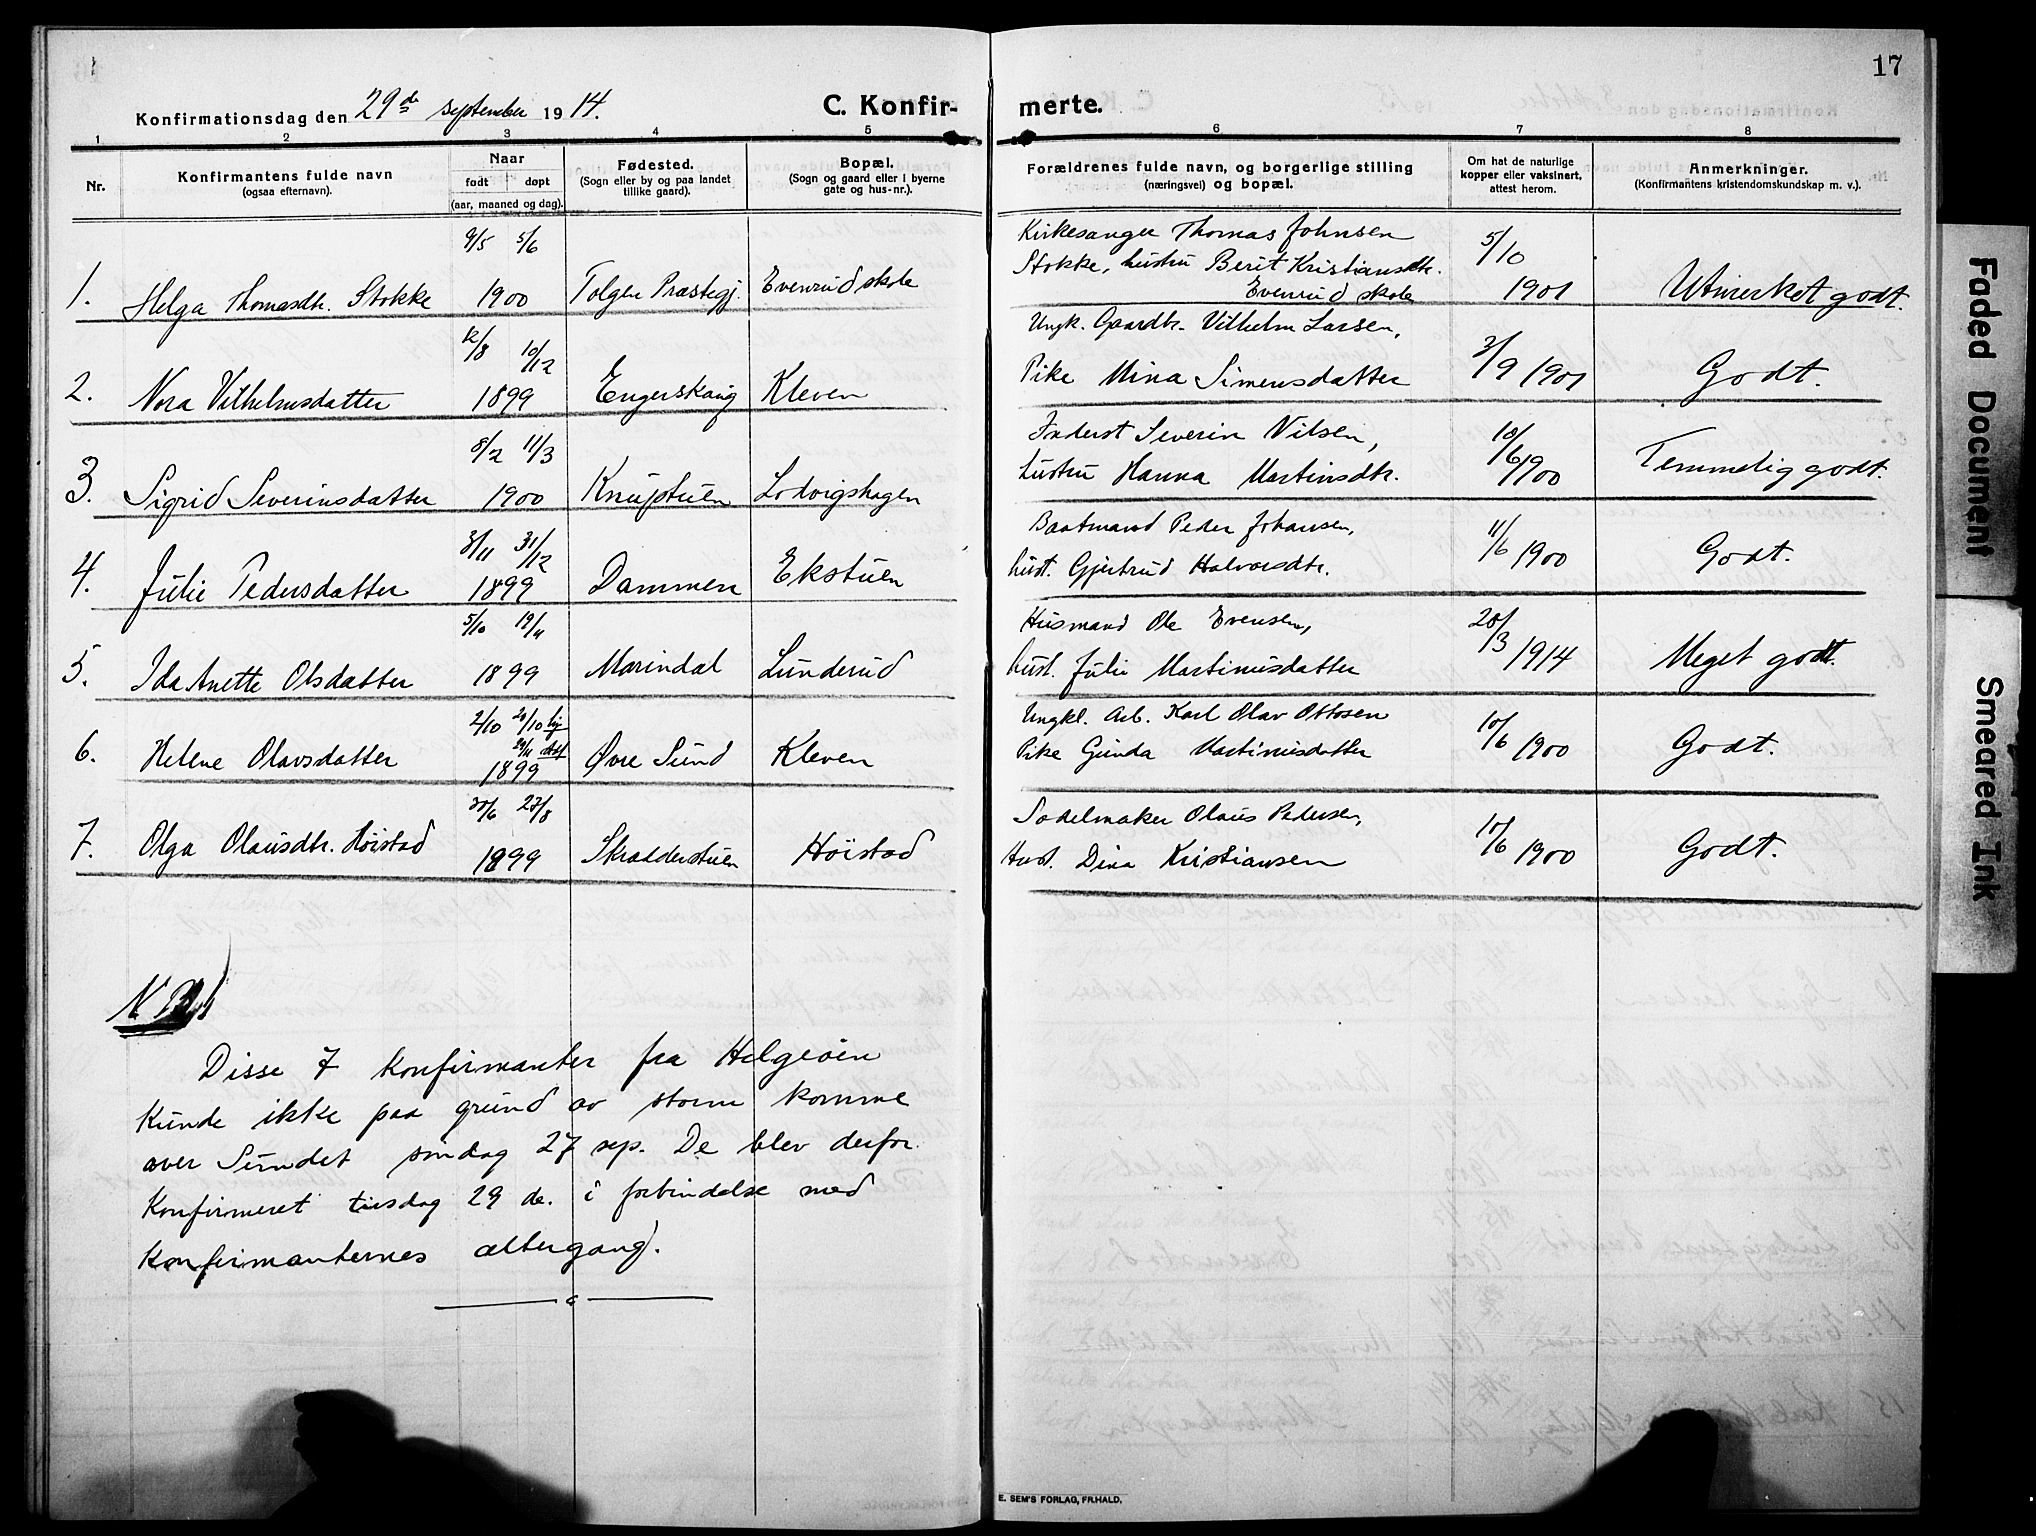 17
Konfirmationsdag den 29de september 1914.
C. Konfirmerte.
1 2 3 4 5 6 7 8
Nr.
Konfirmantens fulde navn
(ogsaa efternavn).
Naar
født døpt
(aar, maaned og dag).
Fødested.
(Sogn eller by og paa landet
tillike gaard).
Bopæl.
(Sogn og gaard eller i byerne
gate og hus-nr.).
Forældrenes fulde navn, og borgerlige stilling
(næringsvei) og bopæl.
Om hat de naturlige
kopper eller vaksinert,
attest herom.
Anmerkninger.
(Konfirmantens kristendomskundskap m. v.).
9/5 5/6
1. Helga Thomasdtr. Stokke 1900 Tolgen Præstegj. Evenrud skole
Kirkesanger Thomas Johnsen
Stokke, hustru Berit Kristiansdtr.
Evenrud skole
5/10
1901
Utmerket godt.
12/8 10/12
2. Nora Vilhelmsdatter 1899 Engerskaug Kleven
Ungk. Gaardbr. Vilhelm Larsen,
Pike Mina Simensdatter
3/9 1901
Godt.
8/2 11/3
3. Sigrid Severinsdatter 1900 Knupstuen Lodvigshagen
Inderst Severin Nilsen,
hustru Hanna Martinsdtr.
10/6 1900
Temmelig godt.
3/11 31/12
4. Julie Pedersdatter 1899 Dammen Ekstuen
Baatmand Peder Johansen,
hust. Gjertrud Halvorsdtr.
11/6 1900
Godt.
5/10 19/11
5. Ida Anette Olsdatter 1899 Marindal Lunderud
Husmand Ole Evensen,
hust. Julie Martinusdatter
20/3 1914
Meget godt.
2/10 20/10 hj
6. Helene Olavsdatter 1899 Øvre Sund Kleven
Ungkl. Arb. Karl Olav Ottosen
Pike Gunda Martinusdatter
10/6 1900
Godt.
30/6 27/8
7. Olga Olausdtr. Høistad 1899 Skrædderstuen Høistad
Sadelmaker Olaus Pedersen,
Hust. Dina Kristiansen
10/6 1900
Godt.
N.B.!
Disse 7 konfirmanter fra Helgeøen
kunde ikke paa grund av storm komme
over Sundet søndag 27 sep. De blev derfor
konfirmeret tirsdag 29 de. i forbindelse med
konfirmanternes altergang.
E. SEM'S FORLAG, FR.HALD.
Faded Document
Smeared Ink